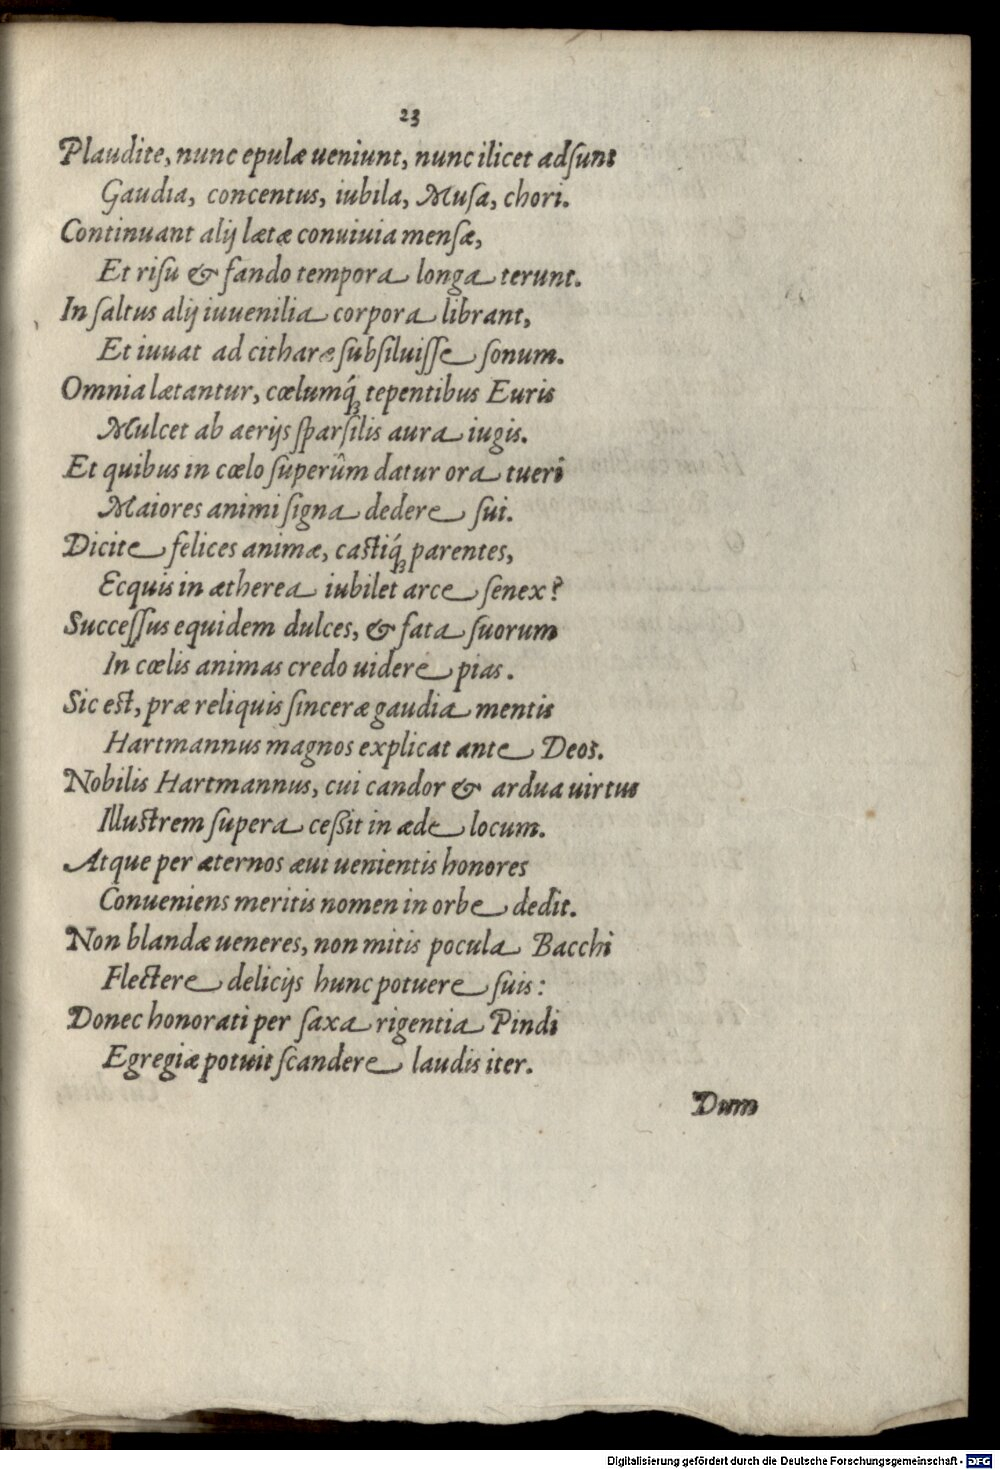 23
Plaudite, nunc epulæ ueniunt, nunc ilicet adſunt
Gaudia, concentus, iubila, Muſa, chori.
Continuant alij lætæ conuiuia menſæ,
Et riſu & fando tempora longa terunt.
In ſaltus alij iuuenilia corpora librant,
Et iuuat ad citharæ ſubſiluiſſe ſonum.
Omnia lætantur, cœlumq́ꝫ tepentibus Euris
Mulcet ab aerijs ſparſilis aura iugis.
Et quibus in cœlo ſuperûm datur ora tueri
Maiores animi ſigna dedere ſui.
Dicite felices animæ, caſtiq́ꝫ parentes,
Ecquis in ætherea iubilet arce ſenex?
Succeſſus equidem dulces, & fata ſuorum
In cœlis animas credo uidere pias.
Sic eſt, præ reliquis ſinceræ gaudia mentis
Hartmannus magnos explicat ante Deos.
Nobilis Hartmannus, cui candor & ardua uirtus
Illuſtrem ſupera ceßit in æde locum.
Atque per æternos æui uenientis honores
Conueniens meritis nomen in orbe dedit.
Non blandæ ueneres, non mitis pocula Bacchi
Flectere delicijs hunc potuere ſuis:
Donec honorati per ſaxa rigentia Pindi
Egregiæ potuit ſcandere laudis iter.
Dum
Digitalisierung gefördert durch die Deutsche Forschungsgemeinschaft - DFG